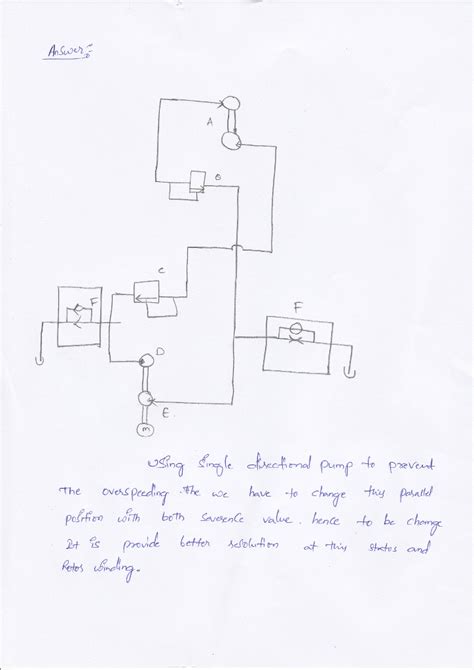 Answer :-
A
B
C
F
F
D
E
M
Using single directional pump to prevent
The overspeeding. The we have to change this parallel
position with both severence value. hence to be change
It is provide better resolution at this stator and
Rotor winding.